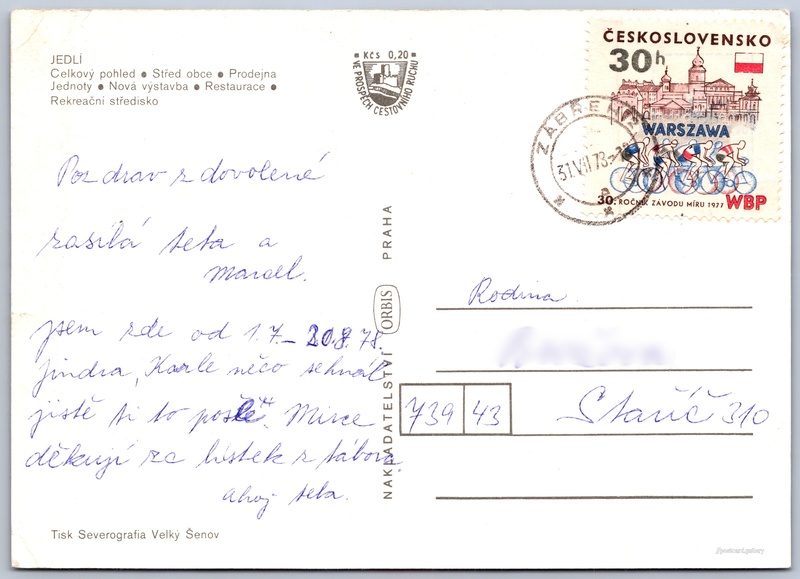 JEDLÍ
Celkový pohled ● Střed obce ● Prodejna
Jednoty ● Nová výstavba ● Restaurace ●
Rekreační středisko
Kčs 0,20
VE PROSPĚCH CESTOVNÍHO RUCHU
ČESKOSLOVENSKO
30h
WARSZAWA
30. ROČNÍK ZÁVODU MÍRU 1977 WBP
ZÁBŘEH
31.VII.78
Pozdrav z dovolené
zasílá teta a
Marcel.
jsem zde od 1.7.–20.8.78.
Jindra, Karle něco sehnal
jistě ti to pošle. Mirce
děkuji za lístek z tábora
Ahoj teta.
NAKLADATELSTVÍ ORBIS PRAHA
Rodina
739 43 Staříč 310
Tisk Severografia Velký Šenov
//postcard.gallery